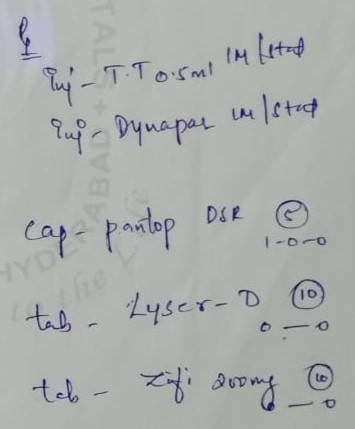 Inj - T.T 0.5ml IM/stat
Inj - Dynapar IM/stat
Cap - pantop DSR 5
1-0-0
tab - Lyser-D 10
0 — 0
tab - Zifi 200mg 10
0 — 0
HYDERABAD